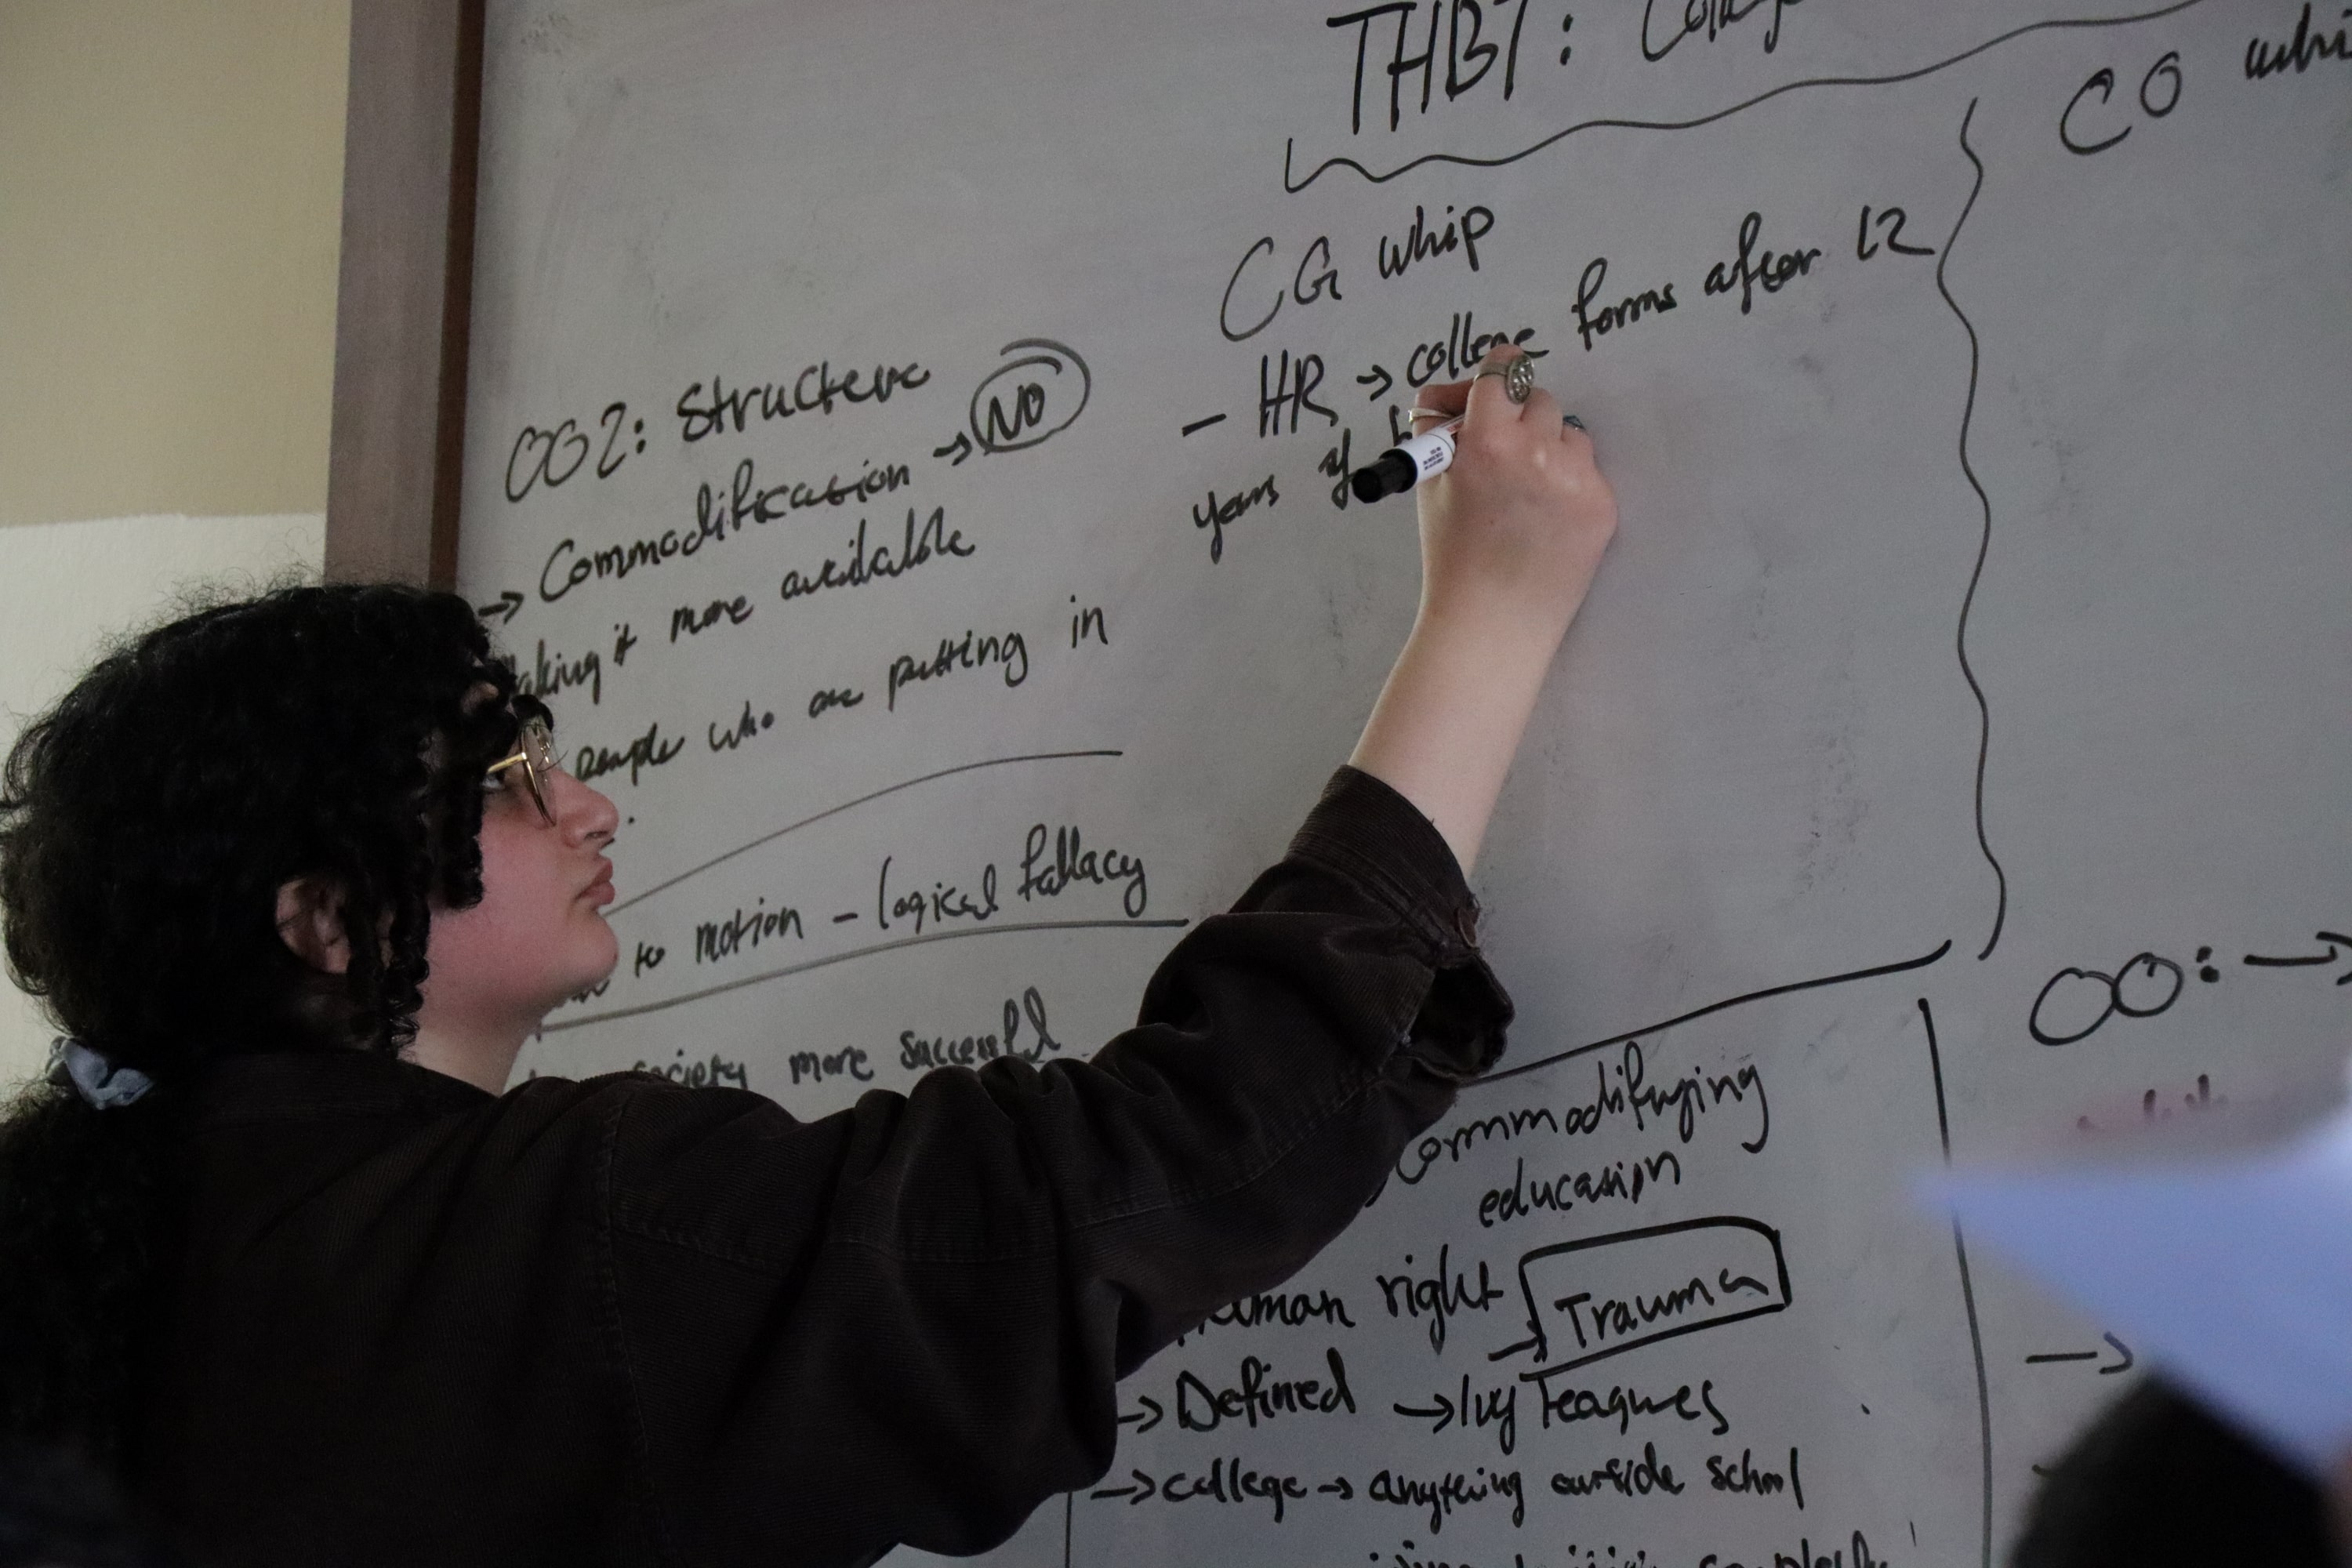 THBT:
CO
CG whip
- HR → college forms after 12
years of
OG2: Structure
→ Commodification → NO
making it more available
people who are putting in
to motion - logical fallacy
society more successful
OO: →
Commodifying
education
human right
→ Trauma
→ Defined → Ivy Leagues
→ college → anything outside school
→